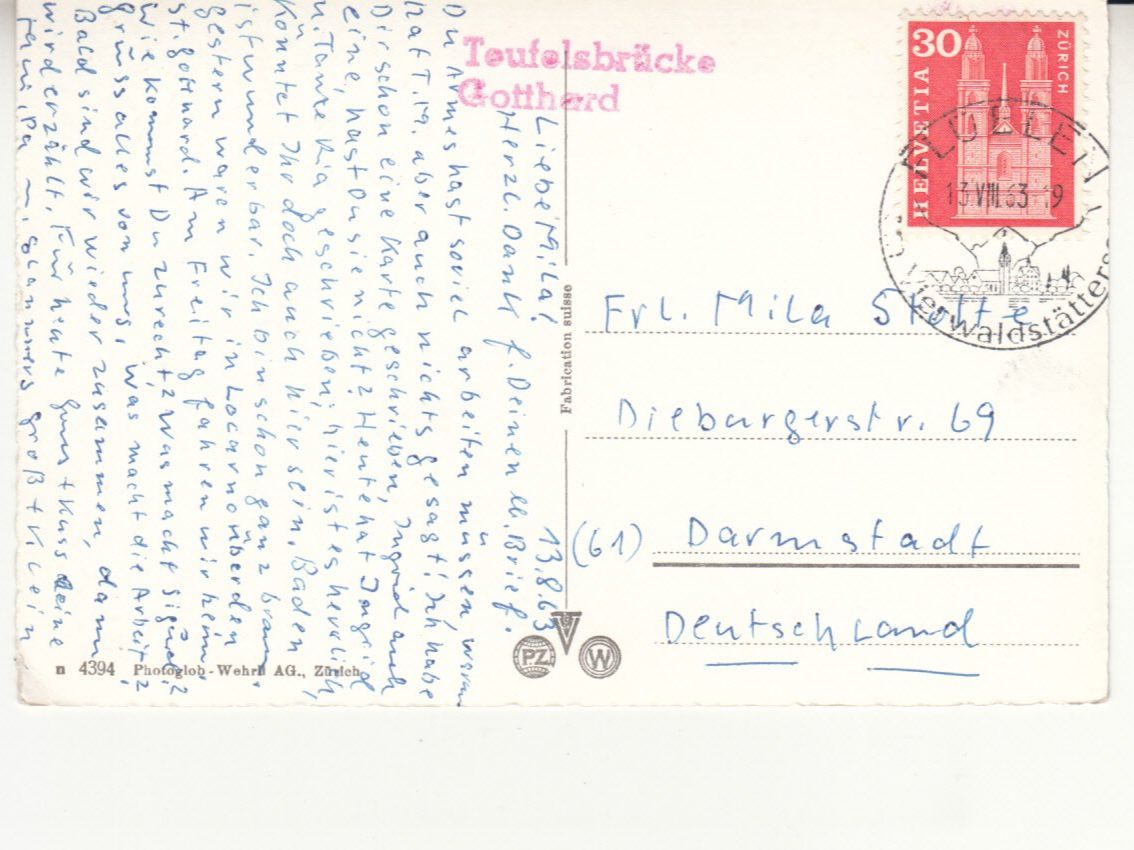 Teufelsbrücke
Gotthard
30
ZÜRICH
HELVETIA
FLÜELEN
13.VIII.63-19
Vierwaldstätters
13.8.63
Liebe Mila!
Herzl. Dank f. Deinen lb. Brief.
Du Armes hast soviel arbeiten müssen, warum
hat T. M. aber auch nichts gesagt; ich habe
Dir schon eine Karte geschrieben, Ingrid auch
eine, hast Du sie nicht? Heute hat Ingrid
u. Tante Ria geschrieben; hier ist es herrlich,
Könntet Ihr doch auch hier sein. Baden
ist wunderbar. Ich bin schon ganz braun.
gestern waren wir in Locarno über den
St. gotthard. Am Freitag fahren wir heim.
Wie kommst Du zurecht? Was macht
grüss alles von uns, was macht die Arbeit?
Bald sind wir wieder zusammen, dann
wird erzählt. Für heute gruss + Kuss Deine
groß + klein
Fabrication suisse
Frl. Mila
Dieburgerstr. 69
(61) Darmstadt
Deutschland
PZ W
n 4394 Photoglob-Wehrli AG., Zürich